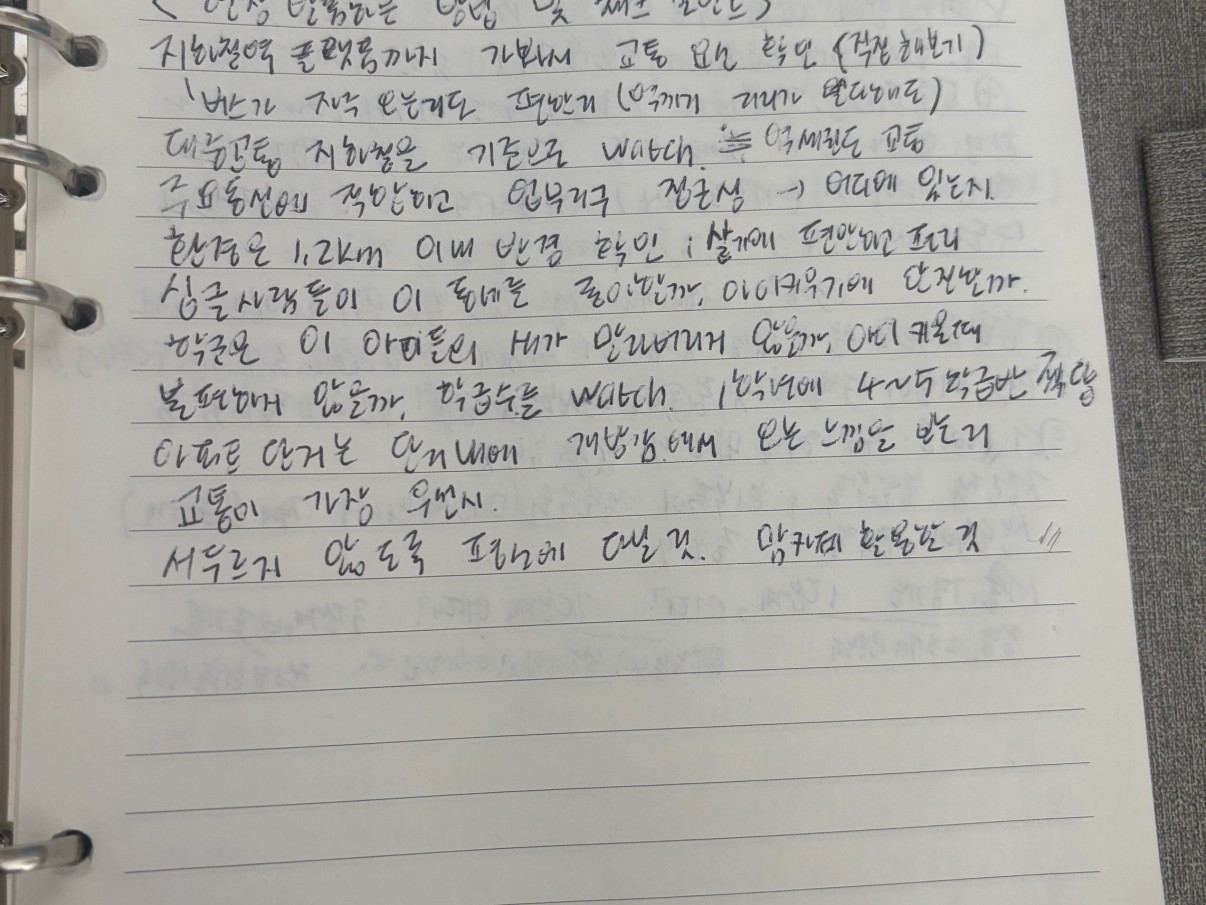 지하철역 플랫폼까지 가봐서 교통 요건 확인 (직접해보기)
버스가 자주 오는지도 편한지 (역까지 거리가 멀다해도)
대중교통 지하철을 기준으로 watch. 교통
주요동선에 적합하고 업무지구 접근성 → 어디에 있는지.
환경은 1,2km 이내 반경 확인 ; 살기에 편안하고 편리
싱글사람들이 이 동네를 좋아할까, 아이키우기에 안전한가.
학군은 이 아파트의 애가 말라버리지 않을까, 아이 키울때
불편하지 않을까, 학급수를 watch. 1학년에 4~5학급반 적당
아파트 단지는 단지내에 개방감.에서 오는 느낌을 받는지
교통이 가장 우선시.
서두르지 않도록 편하게 다닐 것. 맘카페 활용할 것